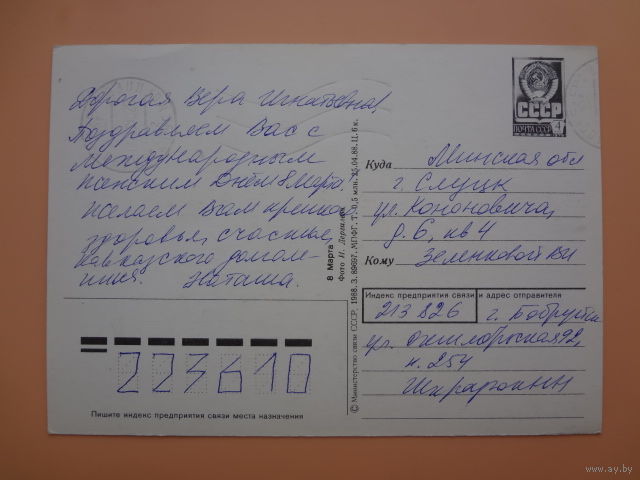 Дорогая Вера Игнатьевна!
Поздравляем Вас с
Международным
женским Днём 8 Марта.
Желаем Вам крепкого
здоровья, счастья,
кавказского долголе-
тия. Наташа.
8 Марта
Фото И. Дергилёва
© Министерство связи СССР, 1988. З. 89697. МПФГ. Т. 0,5 млн. 25.04.88. Ц. 6 к.
СССР
ПОЧТА СССР 4
Куда Минская обл
г. Слуцк
ул. Кононовича,
д. 6, кв 4
Кому Зеленковой ВИ
Индекс предприятия связи и адрес отправителя
213826 г. Бобруйск
ул. Октябрьская 92,
к. 254
223610
Пишите индекс предприятия связи места назначения
www.ay.by